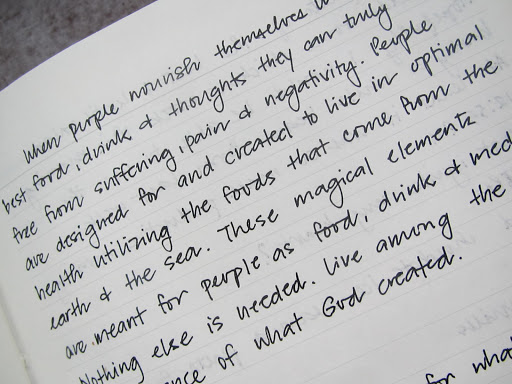 When people nourish themselves w
best food, drink & thoughts they can truly
free from suffering, pain & negativity. People
are designed for and created to live in optimal
health utilizing the foods that come from the
earth & the sea. These magical elements
are meant for people as food, drink & med
Nothing else is needed. Live among the
ence of what God created.
for what